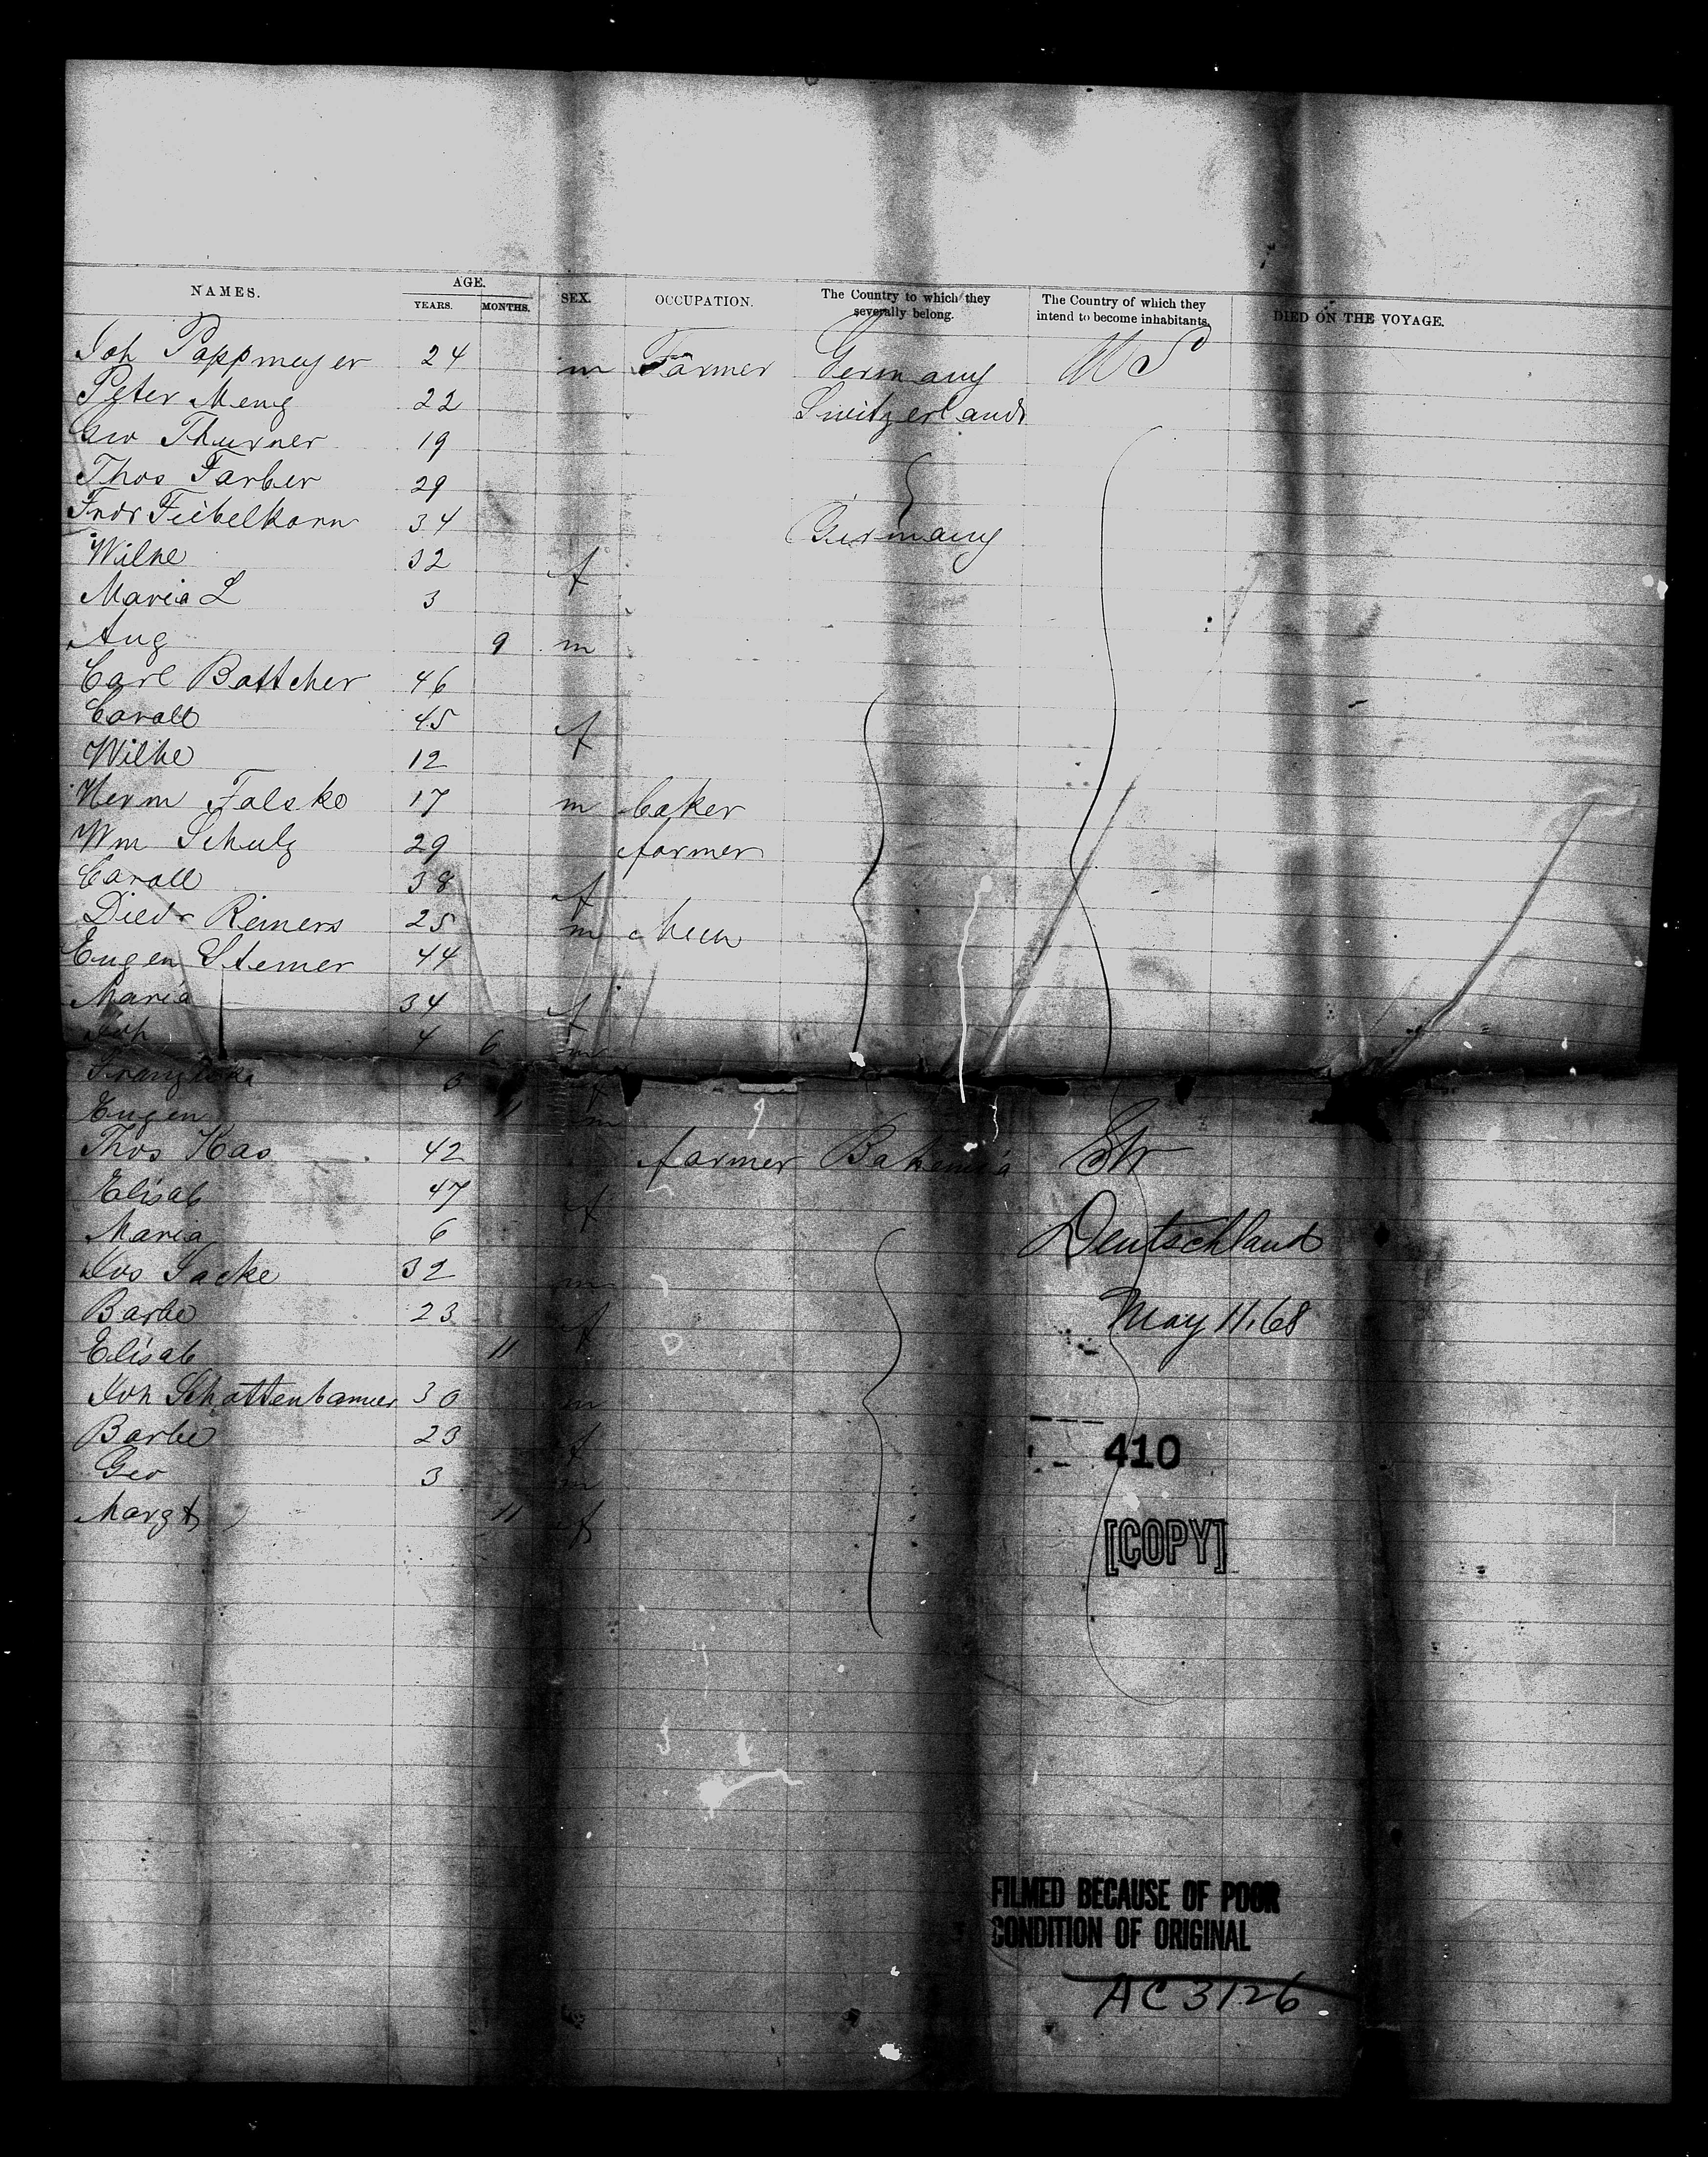 NAMES. AGE. YEARS. MONTHS. SEX. OCCUPATION. The Country to which they severally belong. The Country of which they intend to become inhabitants. DIED ON THE VOYAGE.
Joh Pappmeyer 24 m Farmer Germany US
Peter Meng 22 Switzerland
Geo Thurner 19
Thos Farber 29
Fredr Fiebelkorn 34 Germany
Wilhe 32 f
Maria L 3
Aug 9 m
Carl Bottcher 46
Caroll 45 f
Wilhe 12
Herm Falske 17 m baker
Wm Schulz 29 farmer
Caroll 38 f
Diedr Reiners 25 m
Eugen Sterner 44
Maria 34 f
Joh 4 6 m
Eugen 11 m
Thos Kas 42 farmer Bohemia Str
Elisab 47 f
Maria 6
Deutschland
Jos Jacke 32 m
Barbe 23 f
May 11.68
Elisab 11
Joh 30 m
Barbe 23 f
410
Geo 3 m
Margt 11 f
[COPY]
FILMED BECAUSE OF POOR
CONDITION OF ORIGINAL
AC 3126